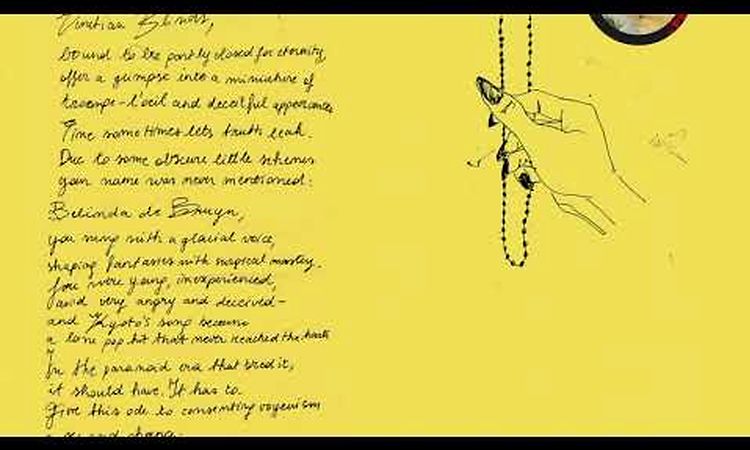 Venitian Blinds,
bound to be partly closed for eternity
offer a glimpse into a miniature of
trompe-l'oeil and deceitful appearances
Time sometimes lets truth leak.
Due to some obscure little schemes
your name was never mentioned:
Belinda de Bruyn,
you sung with a glacial voice,
shaping fantasies with surgical mastery.
You were young, inexperienced,
and very angry and deceived-
and Kyoto's song became
a lone pop hit that never reached the charts
In the paranoid era that bred it,
it should have. It has to.
Give this ode to consenting voyeurism